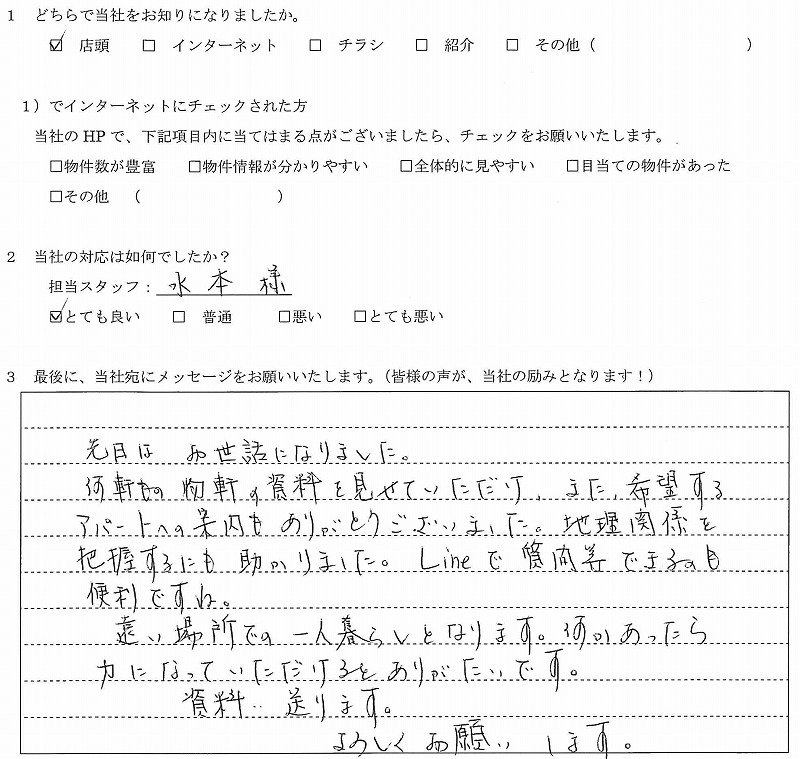 1 どちらで当社をお知りになりましたか。
☑ 店頭 □ インターネット □ チラシ □ 紹介 □ その他（ ）
1）でインターネットにチェックされた方
当社のHPで、下記項目内に当てはまる点がございましたら、チェックをお願いいたします。
□物件数が豊富 □物件情報が分かりやすい □全体的に見やすい □目当ての物件があった
□その他 （ ）
2 当社の対応は如何でしたか？
担当スタッフ：水本 様
☑とても良い □ 普通 □悪い □とても悪い
3 最後に、当社宛にメッセージをお願いいたします。（皆様の声が、当社の励みとなります！）
先日は お世話になりました。
何軒もの物軒の資料を見せていただけ、また、希望する
アパートへの案内もありがとうございました。地理関係を
把握するにも助かりました。Lineで質問等できるのも
便利ですね。
遠い場所での一人暮らしとなります。何かあったら
力になっていただけるとありがたいです。
資料‥送ります。
よろしくお願い します。